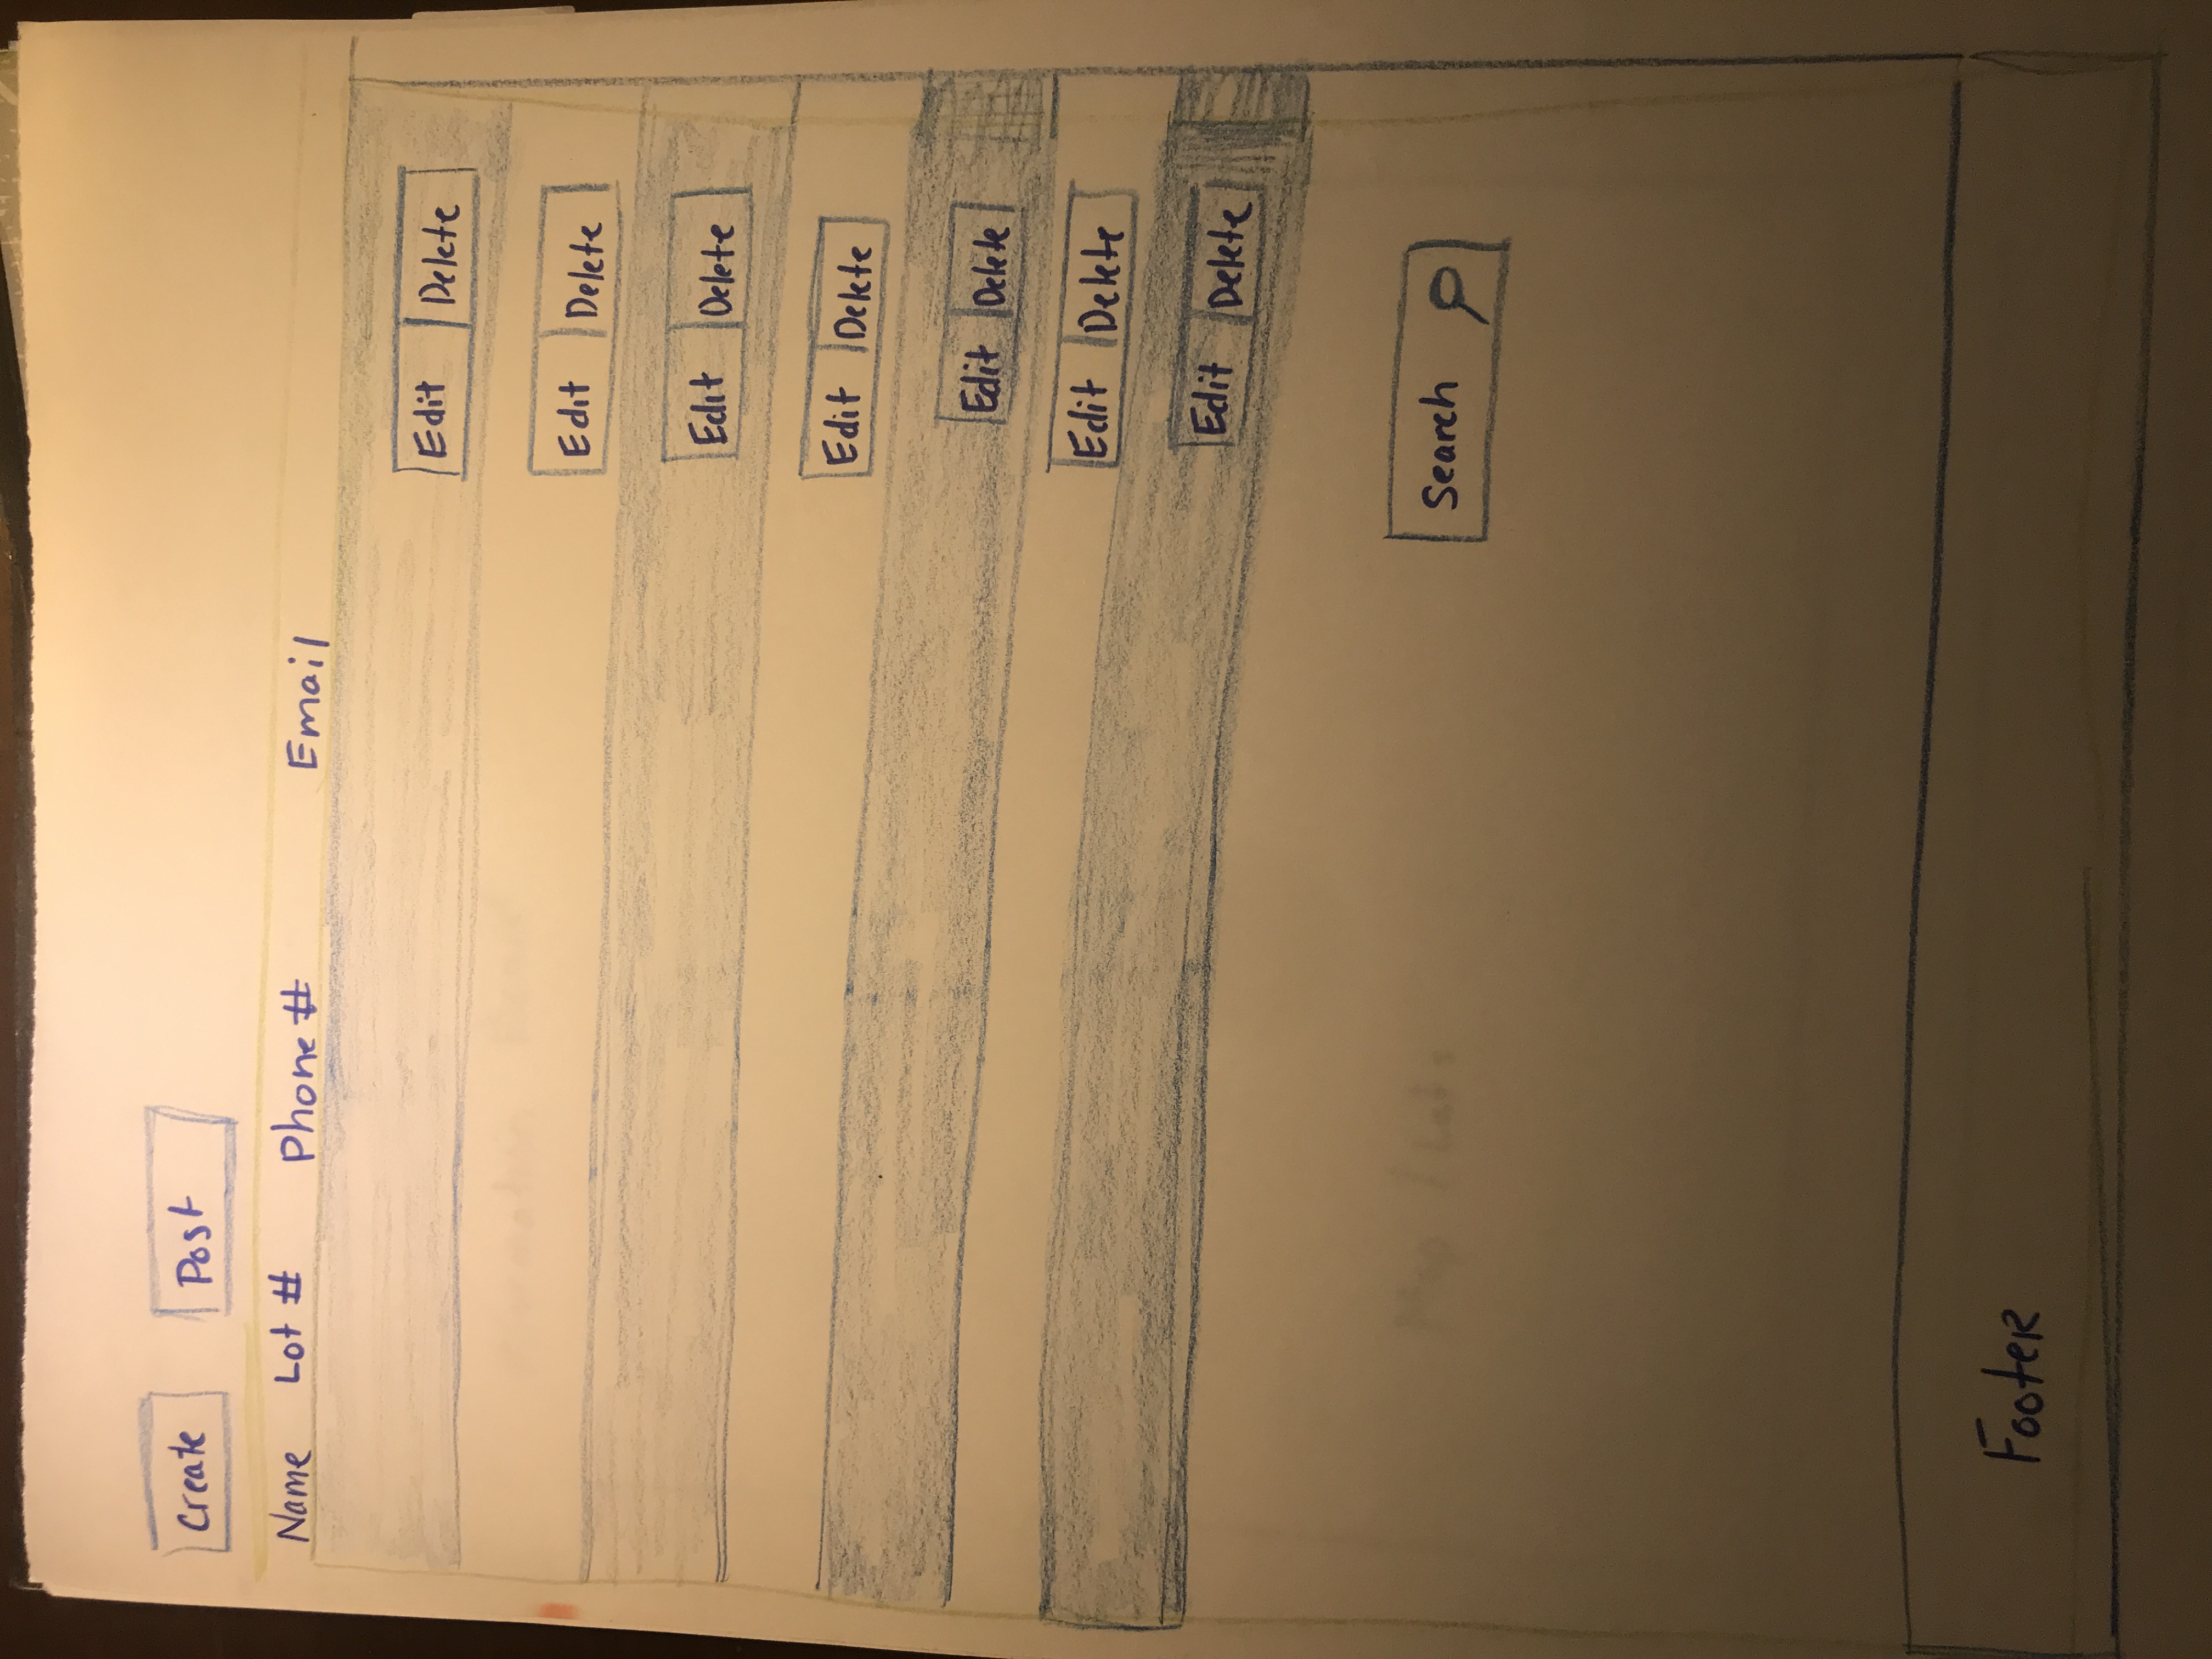 Create Post
Name Lot # Phone # Email
Edit Delete
Edit Delete
Edit Delete
Edit Delete
Edit Delete
Edit Delete
Edit Delete
Search
Footer